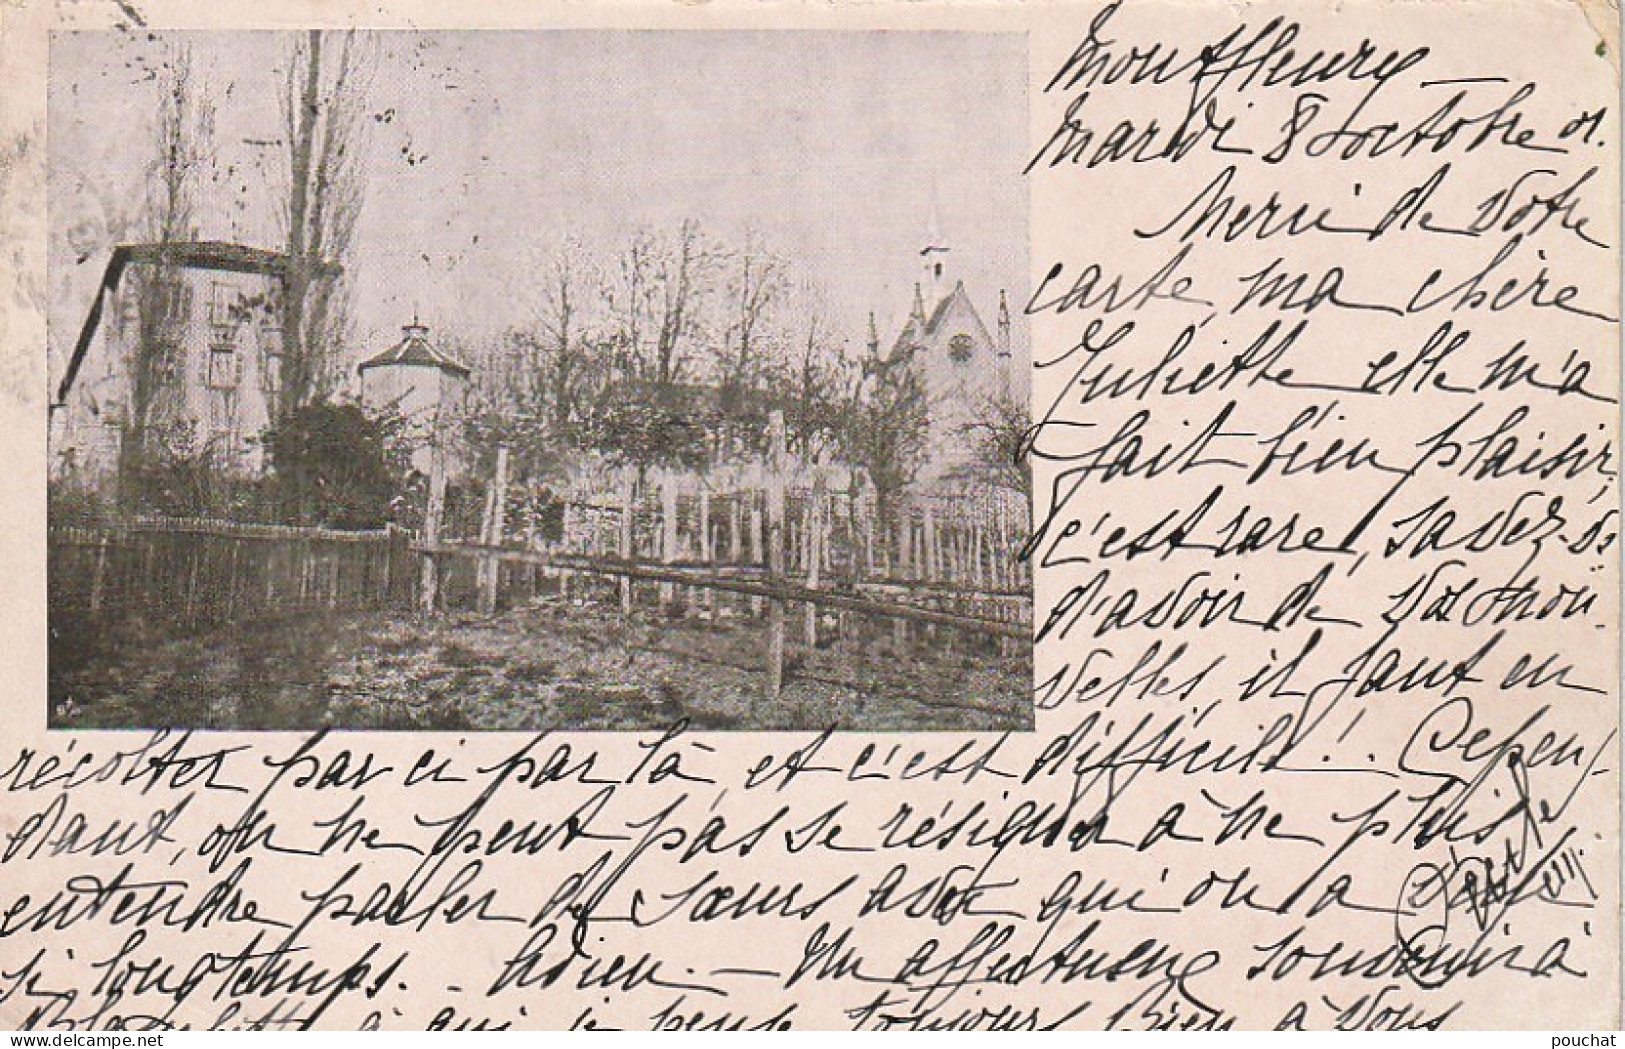 Montfleury —
Mardi 8 octobre 01.
Merci de votre
carte, ma chère
Juliette elle m'a
fait bien plaisir,
c'est rare, savez-vs
d'avoir de vos nou-
velles, il faut en
récolter par ci par là, et c'est difficile!.. Cepen-
dant, on ne peut pas se résigner à ne plus
entendre parler de sœurs avec qui on a vécu
si longtemps.. Adieu. — Un affectueux souvenir à
à qui je pense toujours Bien à vous
pouchat